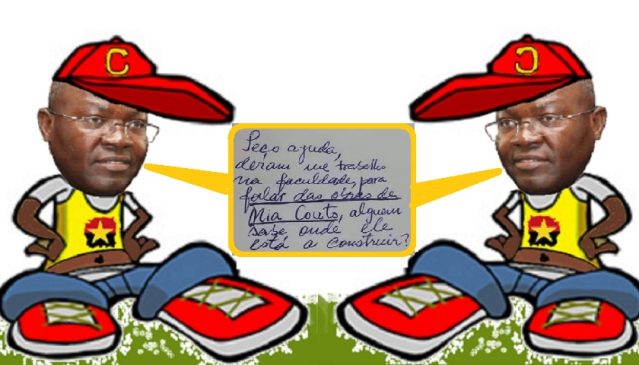 C
Peço ajuda,
deram me trabalho
na faculdade, para
falar das obras de
Mia Couto, alguem
sabe onde ele
está a construir?
C